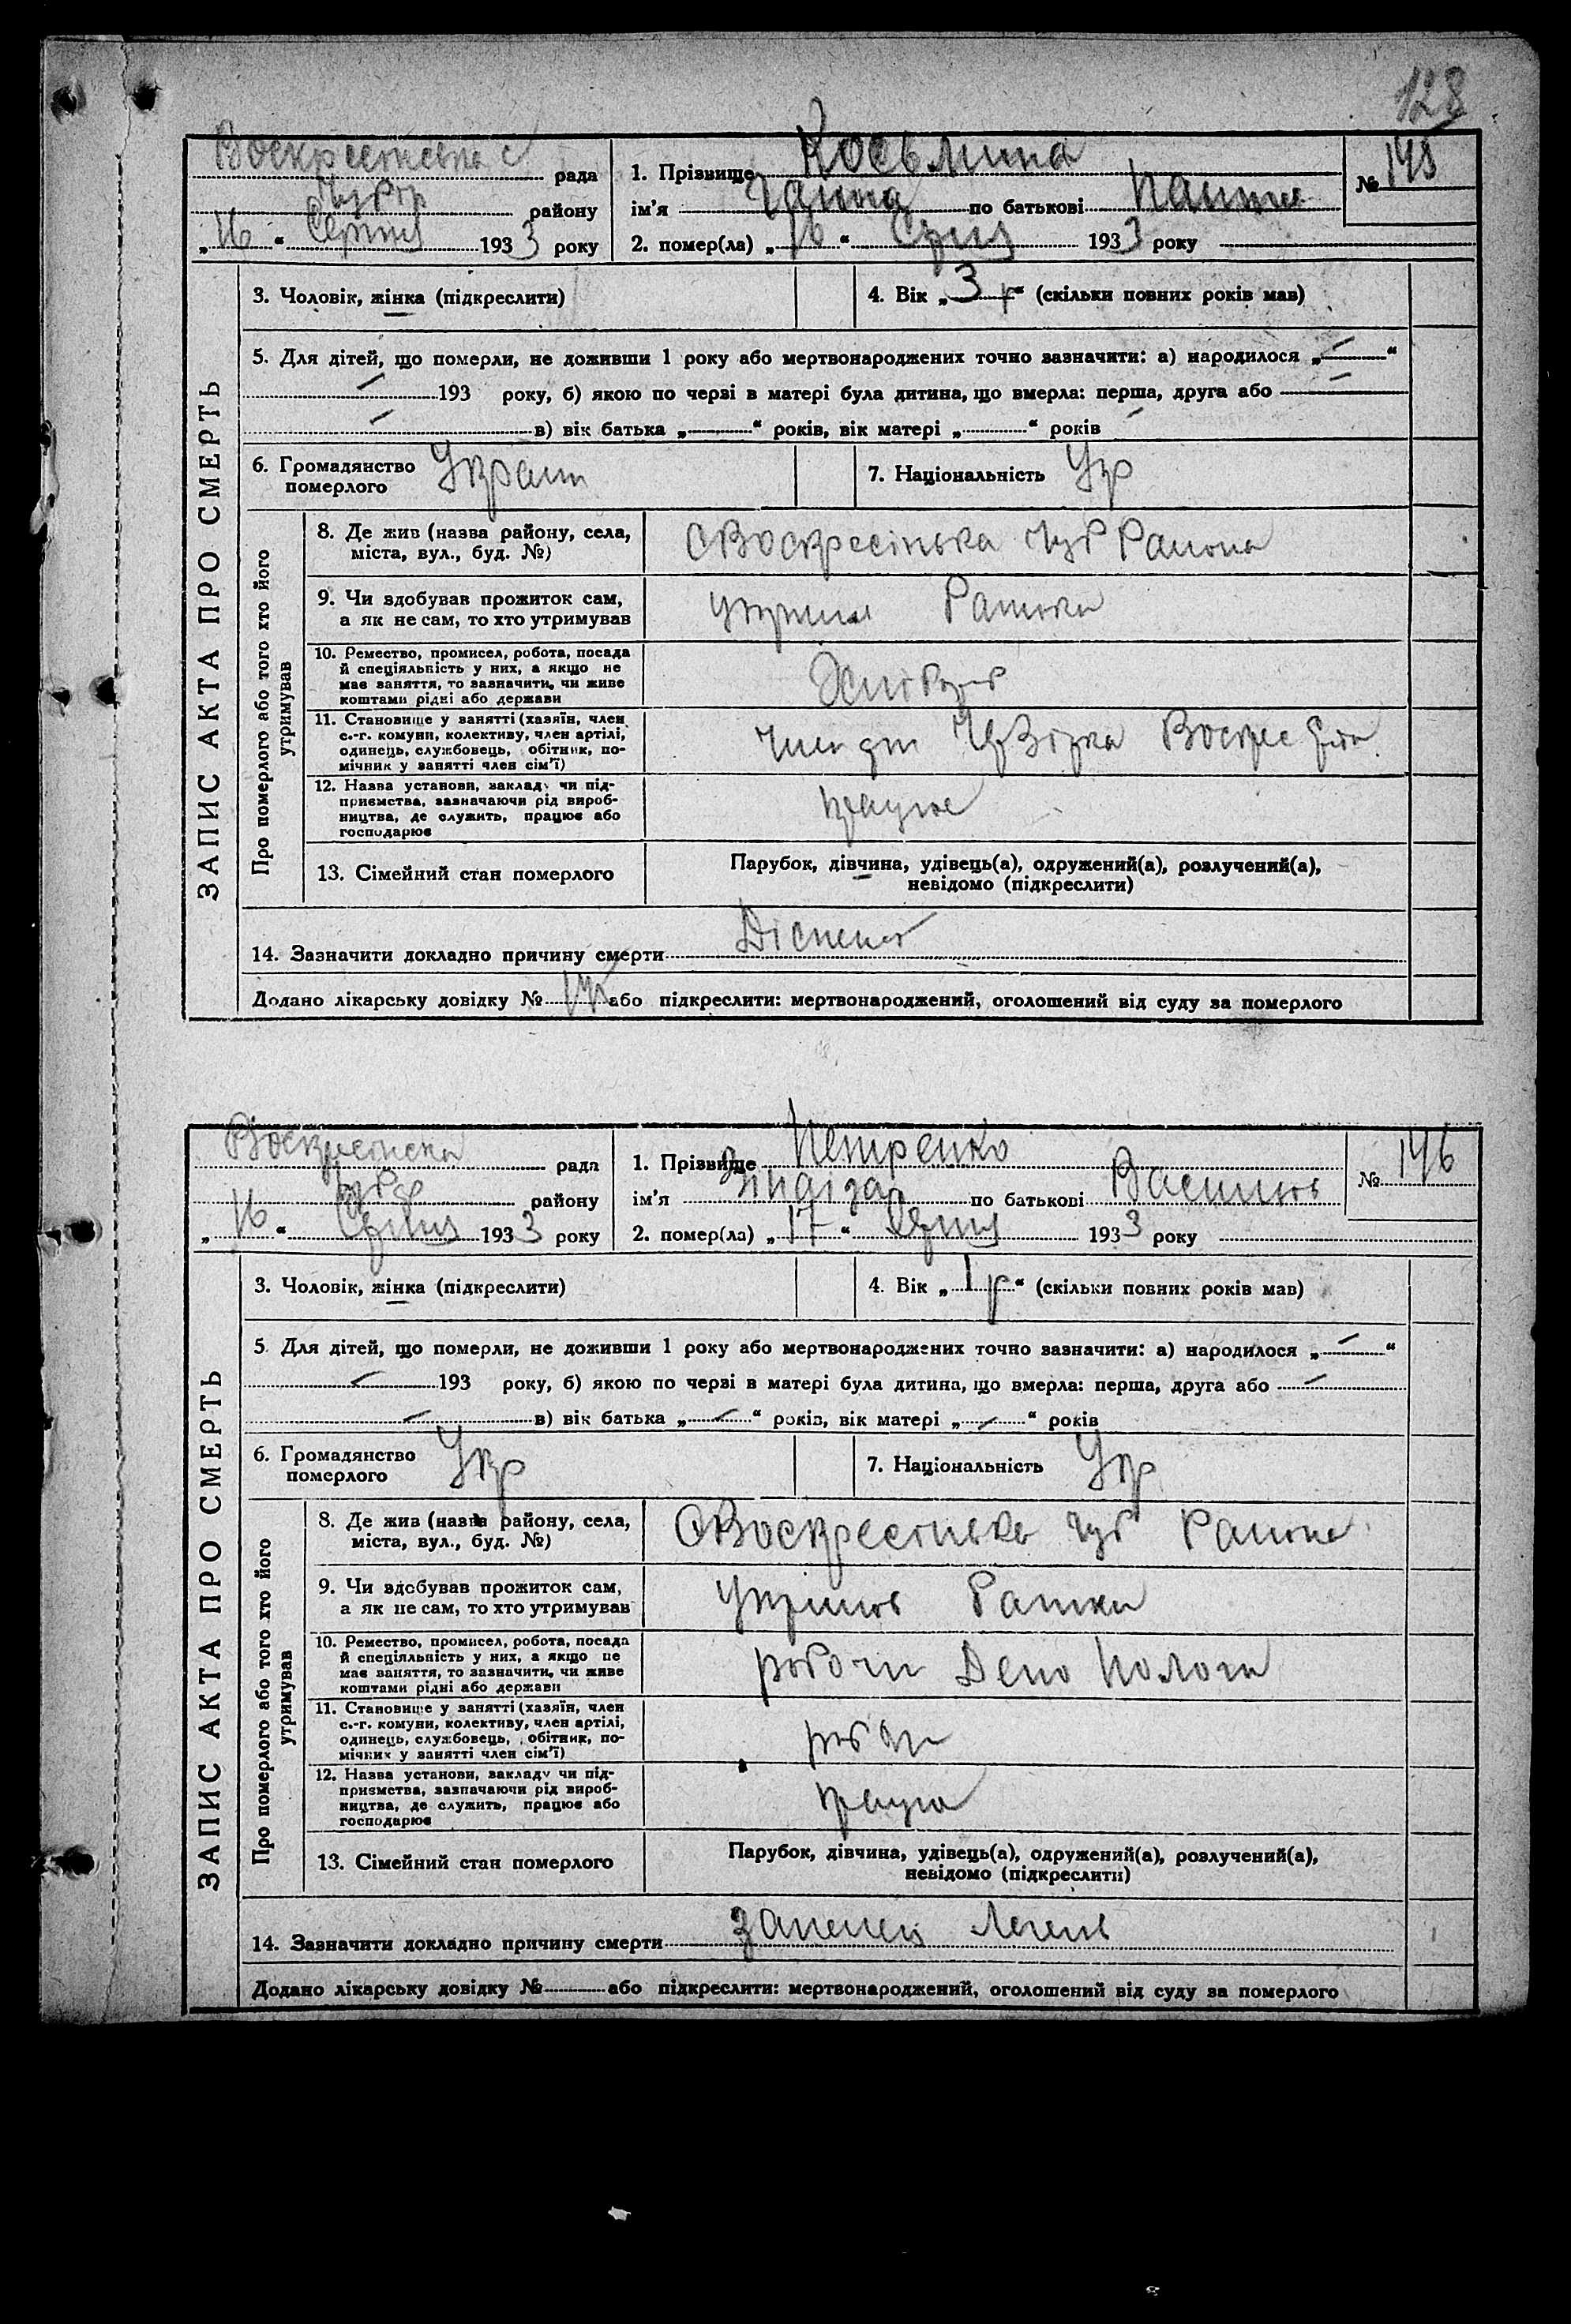 128
рада
району
„16“ Серпня 1933 року
1. Прізвище Косьмина
ім'я Ганна по батькові
2. помер(ла) „16“ 1933 року
№ 145
ЗАПИС АКТА ПРО СМЕРТЬ
3. Чоловік, жінка (підкреслити)
4. Вік „3 р“ (скільки повних років мав)
5. Для дітей, що померли, не доживши 1 року або мертвонароджених точно зазначити: а) народилося „—“
— 193 року, б) якою по черзі в матері була дитина, що вмерла: перша, друга або —
— в) вік батька „ “ років, вік матері „ “ років
6. Громадянство
померлого
7. Національність Укр
Про померлого або того хто його
утримував
8. Де жив (назва району, села,
міста, вул., буд. №)
с Воскресінька Района
9. Чи здобував прожиток сам,
а як не сам, то хто утримував
10. Ремество, промисел, робота, посада
й спеціяльність у них, а якщо не
має заняття, то зазначити, чи живе
коштами рідні або держави
11. Становище у занятті (хазяїн, член
с.-г. комуни, колективу, член артілі,
одинець, службовець, обітник, по-
мічник у занятті член сім'ї)
12. Назва установи, закладу чи під-
приємства, зазначаючи рід вироб-
ництва, де служить, працює або
господарює
працює
13. Сімейний стан померлого
Парубок, дівчина, удівець(а), одружений(а), розлучений(а),
невідомо (підкреслити)
14. Зазначити докладно причину смерти
Додано лікарську довідку № або підкреслити: мертвонароджений, оголошений від суду за померлого
рада
району
„16“ Серпня 1933 року
1. Прізвище Петренко
ім'я по батькові
2. помер(ла) „17“ 1933 року
№ 146
ЗАПИС АКТА ПРО СМЕРТЬ
3. Чоловік, жінка (підкреслити)
4. Вік „1 р“ (скільки повних років мав)
5. Для дітей, що померли, не доживши 1 року або мертвонароджених точно зазначити: а) народилося „—“
— 193 року, б) якою по черзі в матері була дитина, що вмерла: перша, друга або —
— в) вік батька „—“ років, вік матері „—“ років
6. Громадянство Укр
померлого
7. Національність Укр
Про померлого або того хто його
утримував
8. Де жив (назва району, села,
міста, вул., буд. №)
с Воскресінька Района
9. Чи здобував прожиток сам,
а як не сам, то хто утримував
10. Ремество, промисел, робота, посада
й спеціяльність у них, а якщо не
має заняття, то зазначити, чи живе
коштами рідні або держави
Депо Пологи
11. Становище у занятті (хазяїн, член
с.-г. комуни, колективу, член артілі,
одинець, службовець, обітник, по-
мічник у занятті член сім'ї)
12. Назва установи, закладу чи під-
приємства, зазначаючи рід вироб-
ництва, де служить, працює або
господарює
13. Сімейний стан померлого
Парубок, дівчина, удівець(а), одружений(а), розлучений(а),
невідомо (підкреслити)
14. Зазначити докладно причину смерти
Додано лікарську довідку № або підкреслити: мертвонароджений, оголошений від суду за померлого